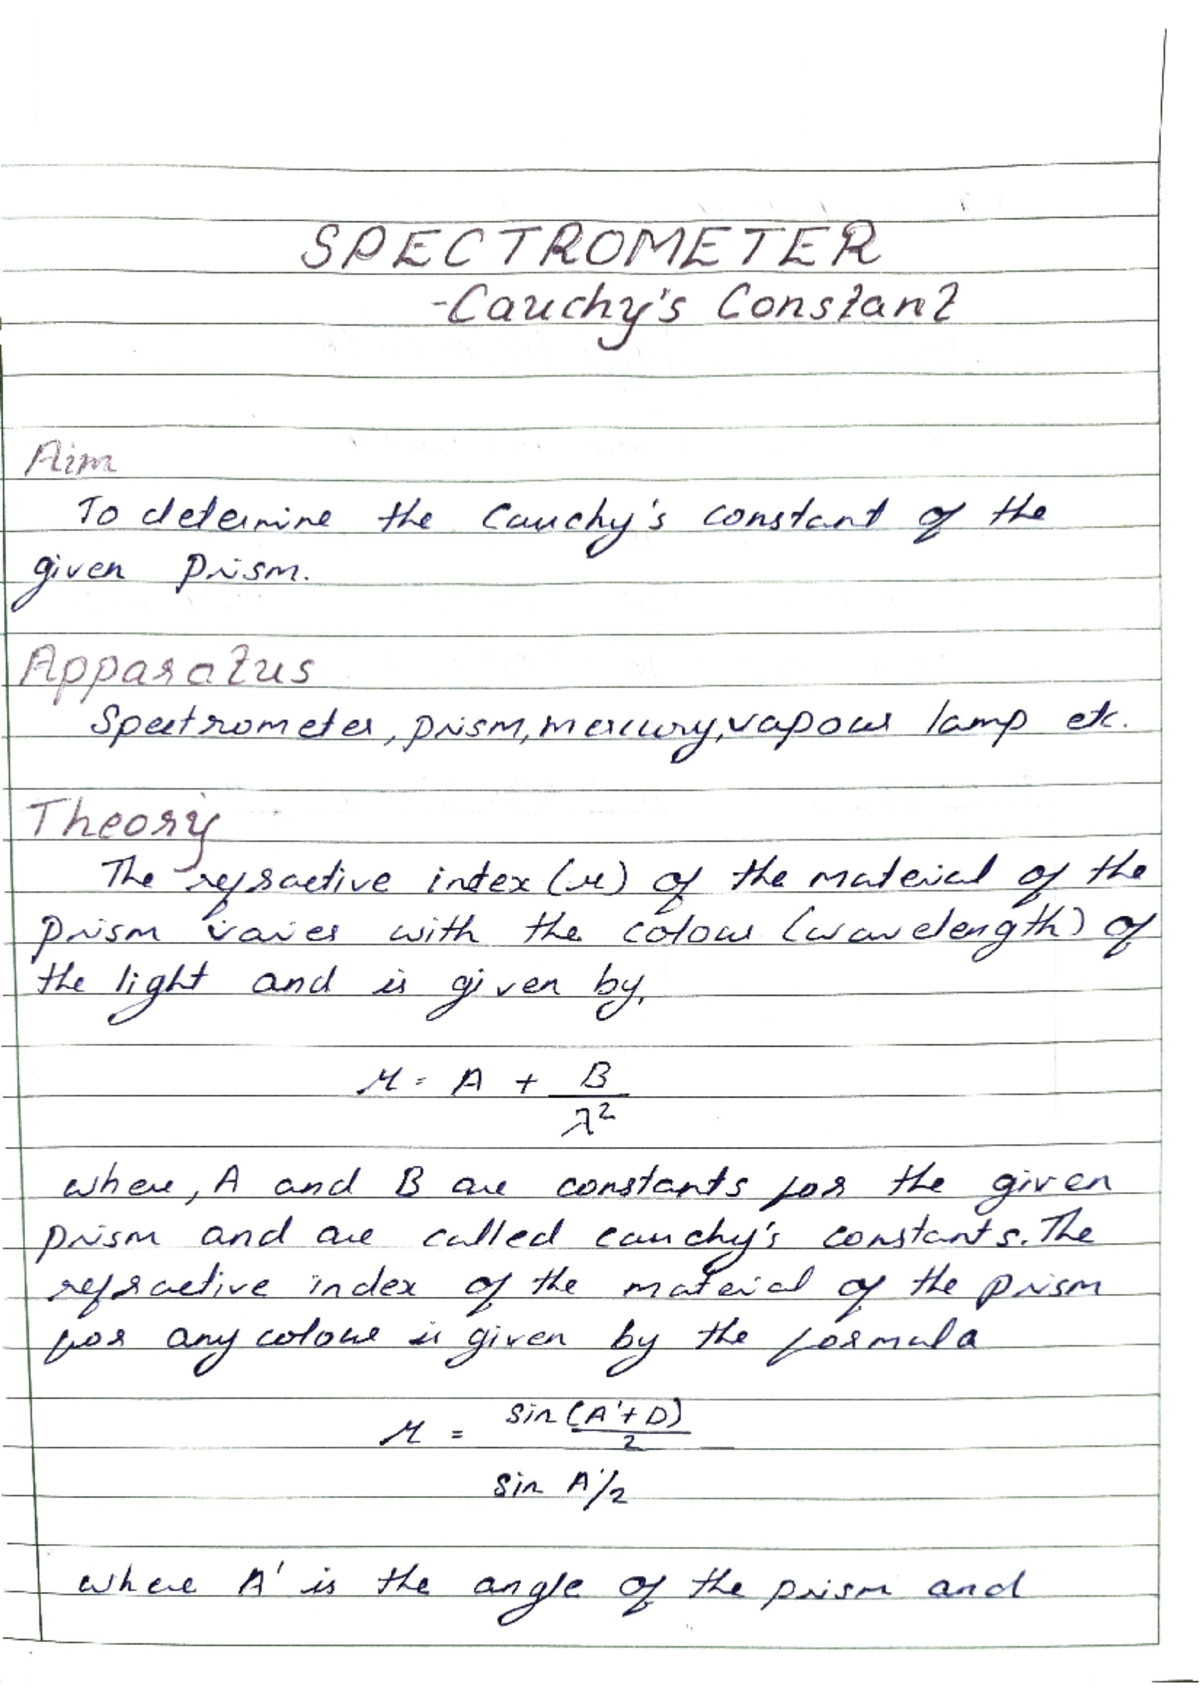 SPECTROMETER
-Cauchy's Constant
Aim
To determine the Cauchy's constant of the
given prism.
Apparatus
Spectrometer, prism, mercury, vapour lamp etc.
Theory
The refractive index (μ) of the material of the
prism varies with the colour (wavelength) of
the light and is given by,
μ = A + B
λ²
where, A and B are constants for the given
prism and are called cauchy's constants. The
refractive index of the material of the prism
for any colour is given by the formula
μ = sin (A'+D)
2
sin A'/2
where A' is the angle of the prism and